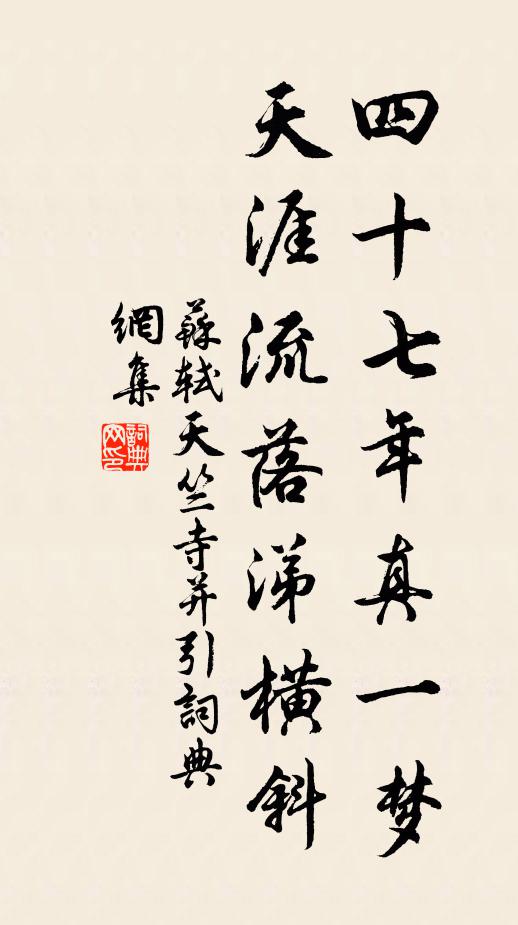 四十七年真一梦
天涯流落涕橫斜
蘇軾天竺寺并引詞典
網集
詞典
网印